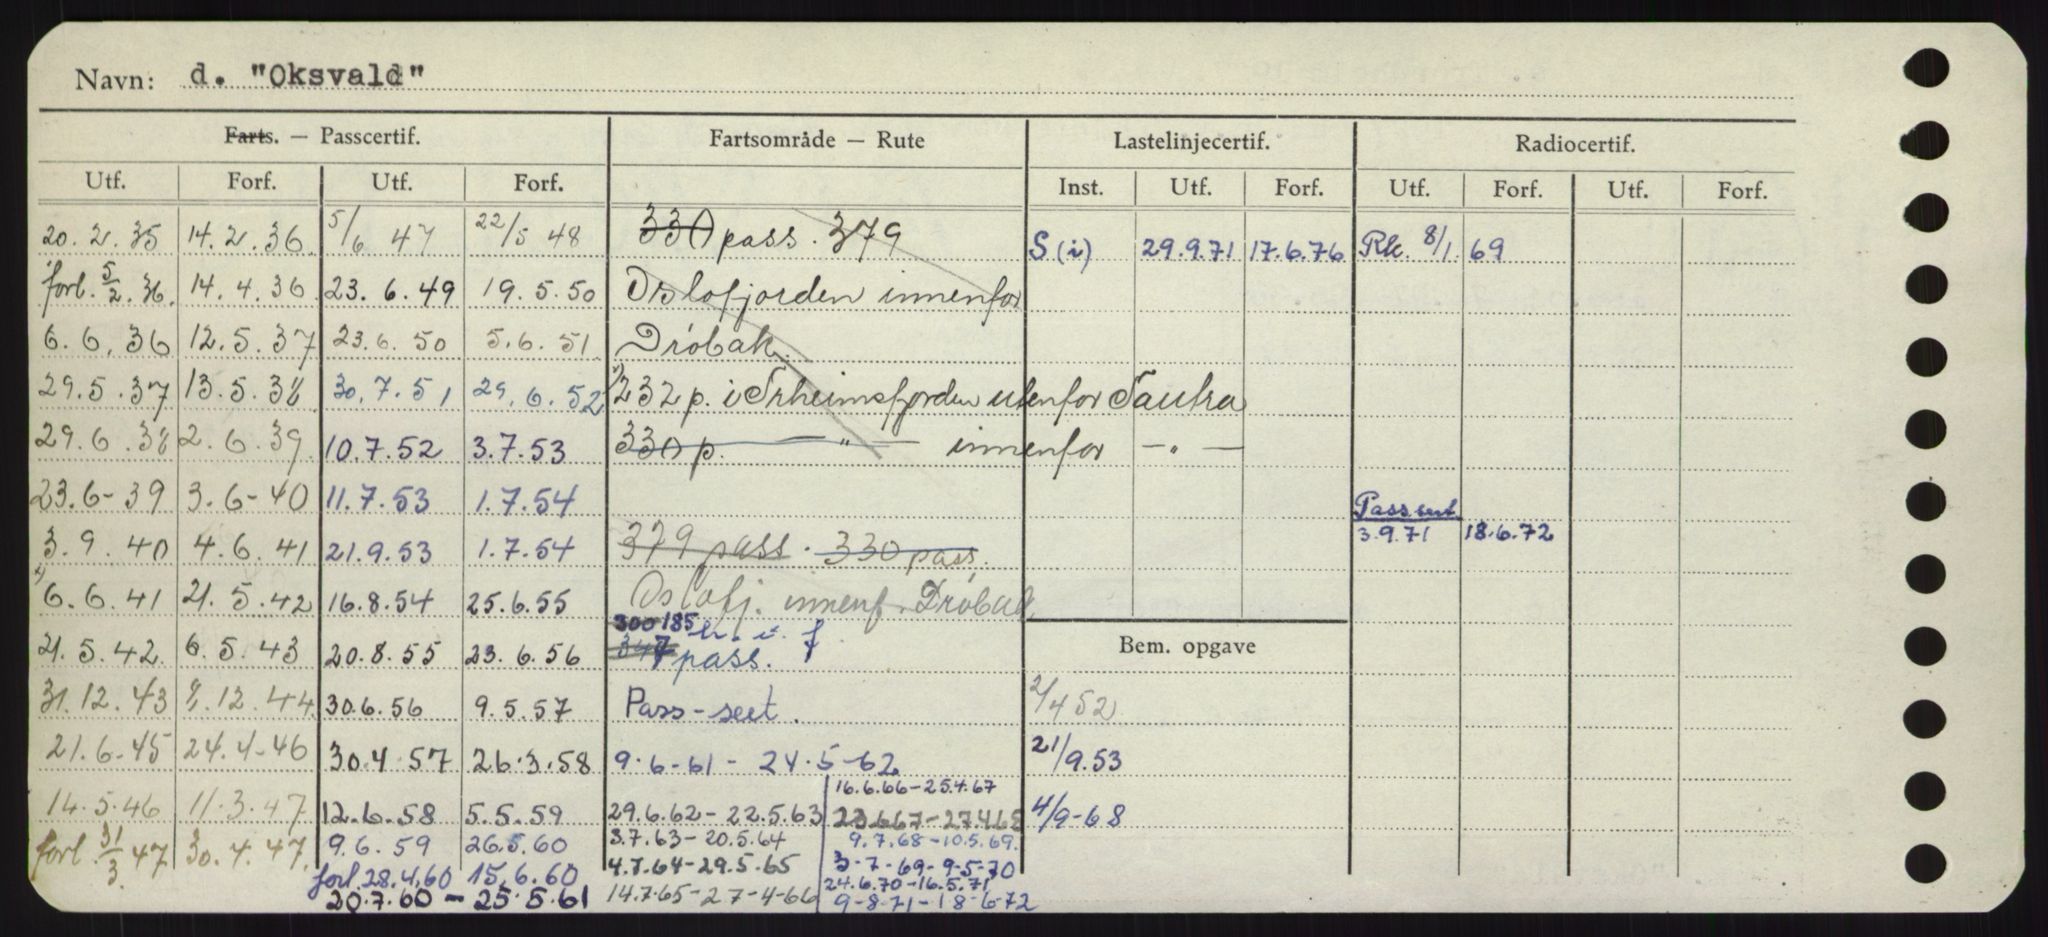 Navn: d. "Oksvald"
Farts. — Passcertif. Fartsområde — Rute Lastelinjecertif. Radiocertif.
Utf. Forf. Utf. Forf. Inst. Utf. Forf. Utf. Forf. Utf. Forf.
20.2.35 14.2.36 5/6 47 22/5 48 330 pass. 379 S (i) 29.9.71 17.6.76 Rk. 8/1 69
forl. 5/2.36. 14.4.36 23.6.49 19.5.50 Oslofjorden innenfor
6.6.36 12.5.37 23.6.50 5.6.51 Drøbak.
29.5.37 13.5.38 30.7.51 29.6.52 232 p. i Trheimsfjorden utenfor Tautra
29.6.38 2.6.39 10.7.52 3.7.53 330 p. — " — innenfor — " —
23.6-39 3.6-40 11.7.53 1.7.54 Pass sert.
3.9.40 4.6.41 21.9.53 1.7.54 379 pass. 330 pass. 3.9.71 18.6.72
6.6.41 21.5.42 16.8.54 25.6.55 Oslofj. innenf. Drøbak
300 185
21.5.42 6.5.43 20.8.55 23.6.56 347 pass. Bem. opgave
31.12.43 9.12.44 30.6.56 9.5.57 Pass-sert. 2/4 52
21.6-45 24.4-46 30.4.57 26.3.58 9.6-61 - 24.5-62 21/9.53
16.6.66-25.4.67
14.5.46 11.3.47 12.6.58 5.5.59 29.6.62-22.5.63 23.6.67-27.4.68 4/9-68
forl. 31/3.47 30.4.47. 9.6.59 26.5.60 3.7.63-20.5.64 9.7.68-10.5.69.
forl. 28.4.60 15.6.60 4.7.64-29.5.65 3-7-69-9-5-70
20.7.60 - 25.5.61 14.7.65-27-4-66 24.6.70-16.5.71
9-8-71-18-6-72